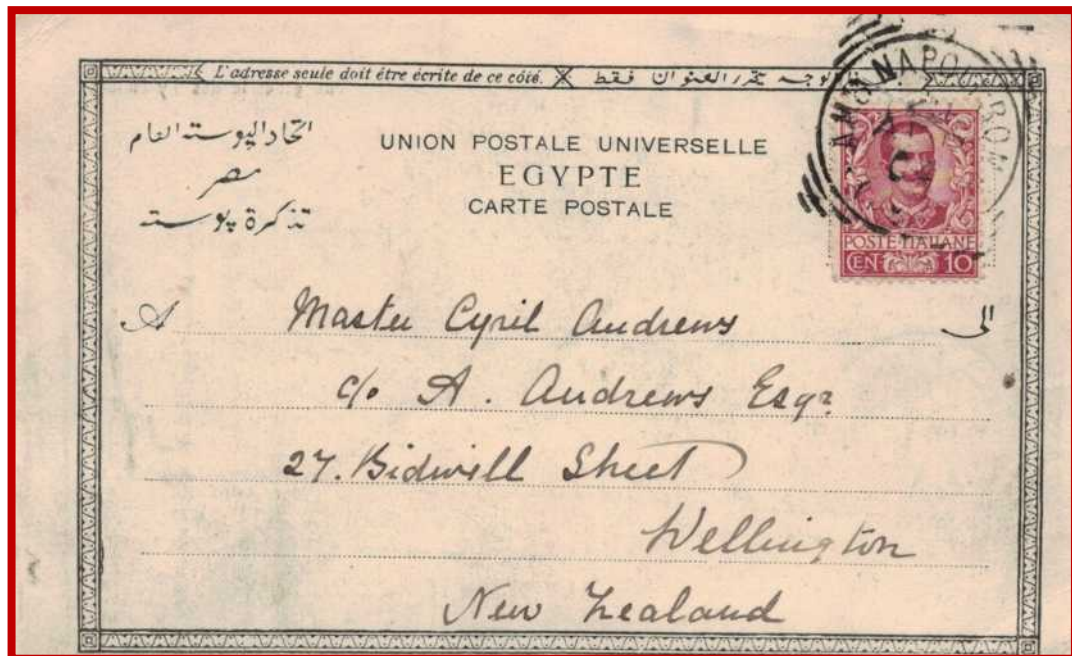 L'adresse seule doit être écrite de ce côté. الوجه يحرر العنوان فقط
اتحاد البوسته العام
مصر
تذكرة بوسته
UNION POSTALE UNIVERSELLE
EGYPTE
CARTE POSTALE
POSTE ITALIANE
CEN 10
A Master Cyril Andrews الى
c/o A. Andrews Esqr
27. Bidwill Street
Wellington
New Zealand